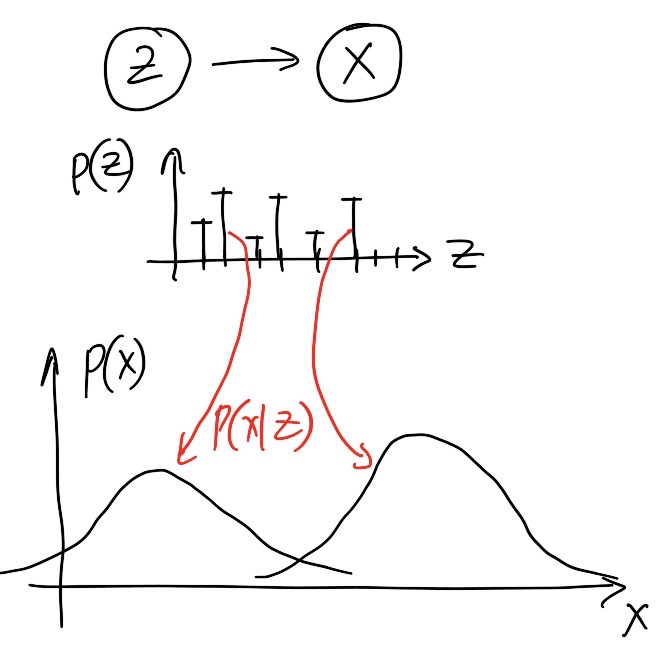 Z X
p(z)
Z
p(x)
p(x|z)
X